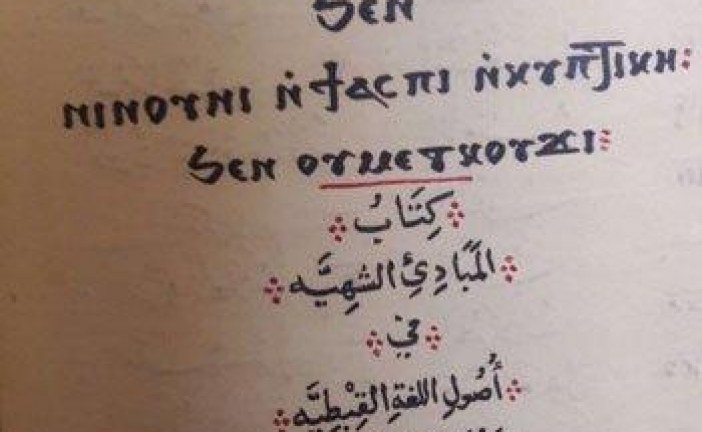 ϧⲉⲛ
ⲛⲓⲛⲟⲩⲛⲓ ⲛ̀ϯⲁⲥⲡⲓ ⲛ̀ⲕⲩⲡⲧⲓⲕⲏ:
ϧⲉⲛ ⲟⲩⲙⲉⲧⲕⲟⲩϫⲓ:
كِتَابُ
المَبَادِئِ الشهِيَّه
في
أُصُولِ اللغةِ القِبْطِيَّه